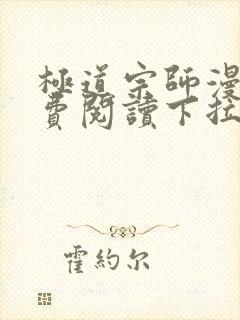 極道宗師漫
費閱讀下拉
霍約尔